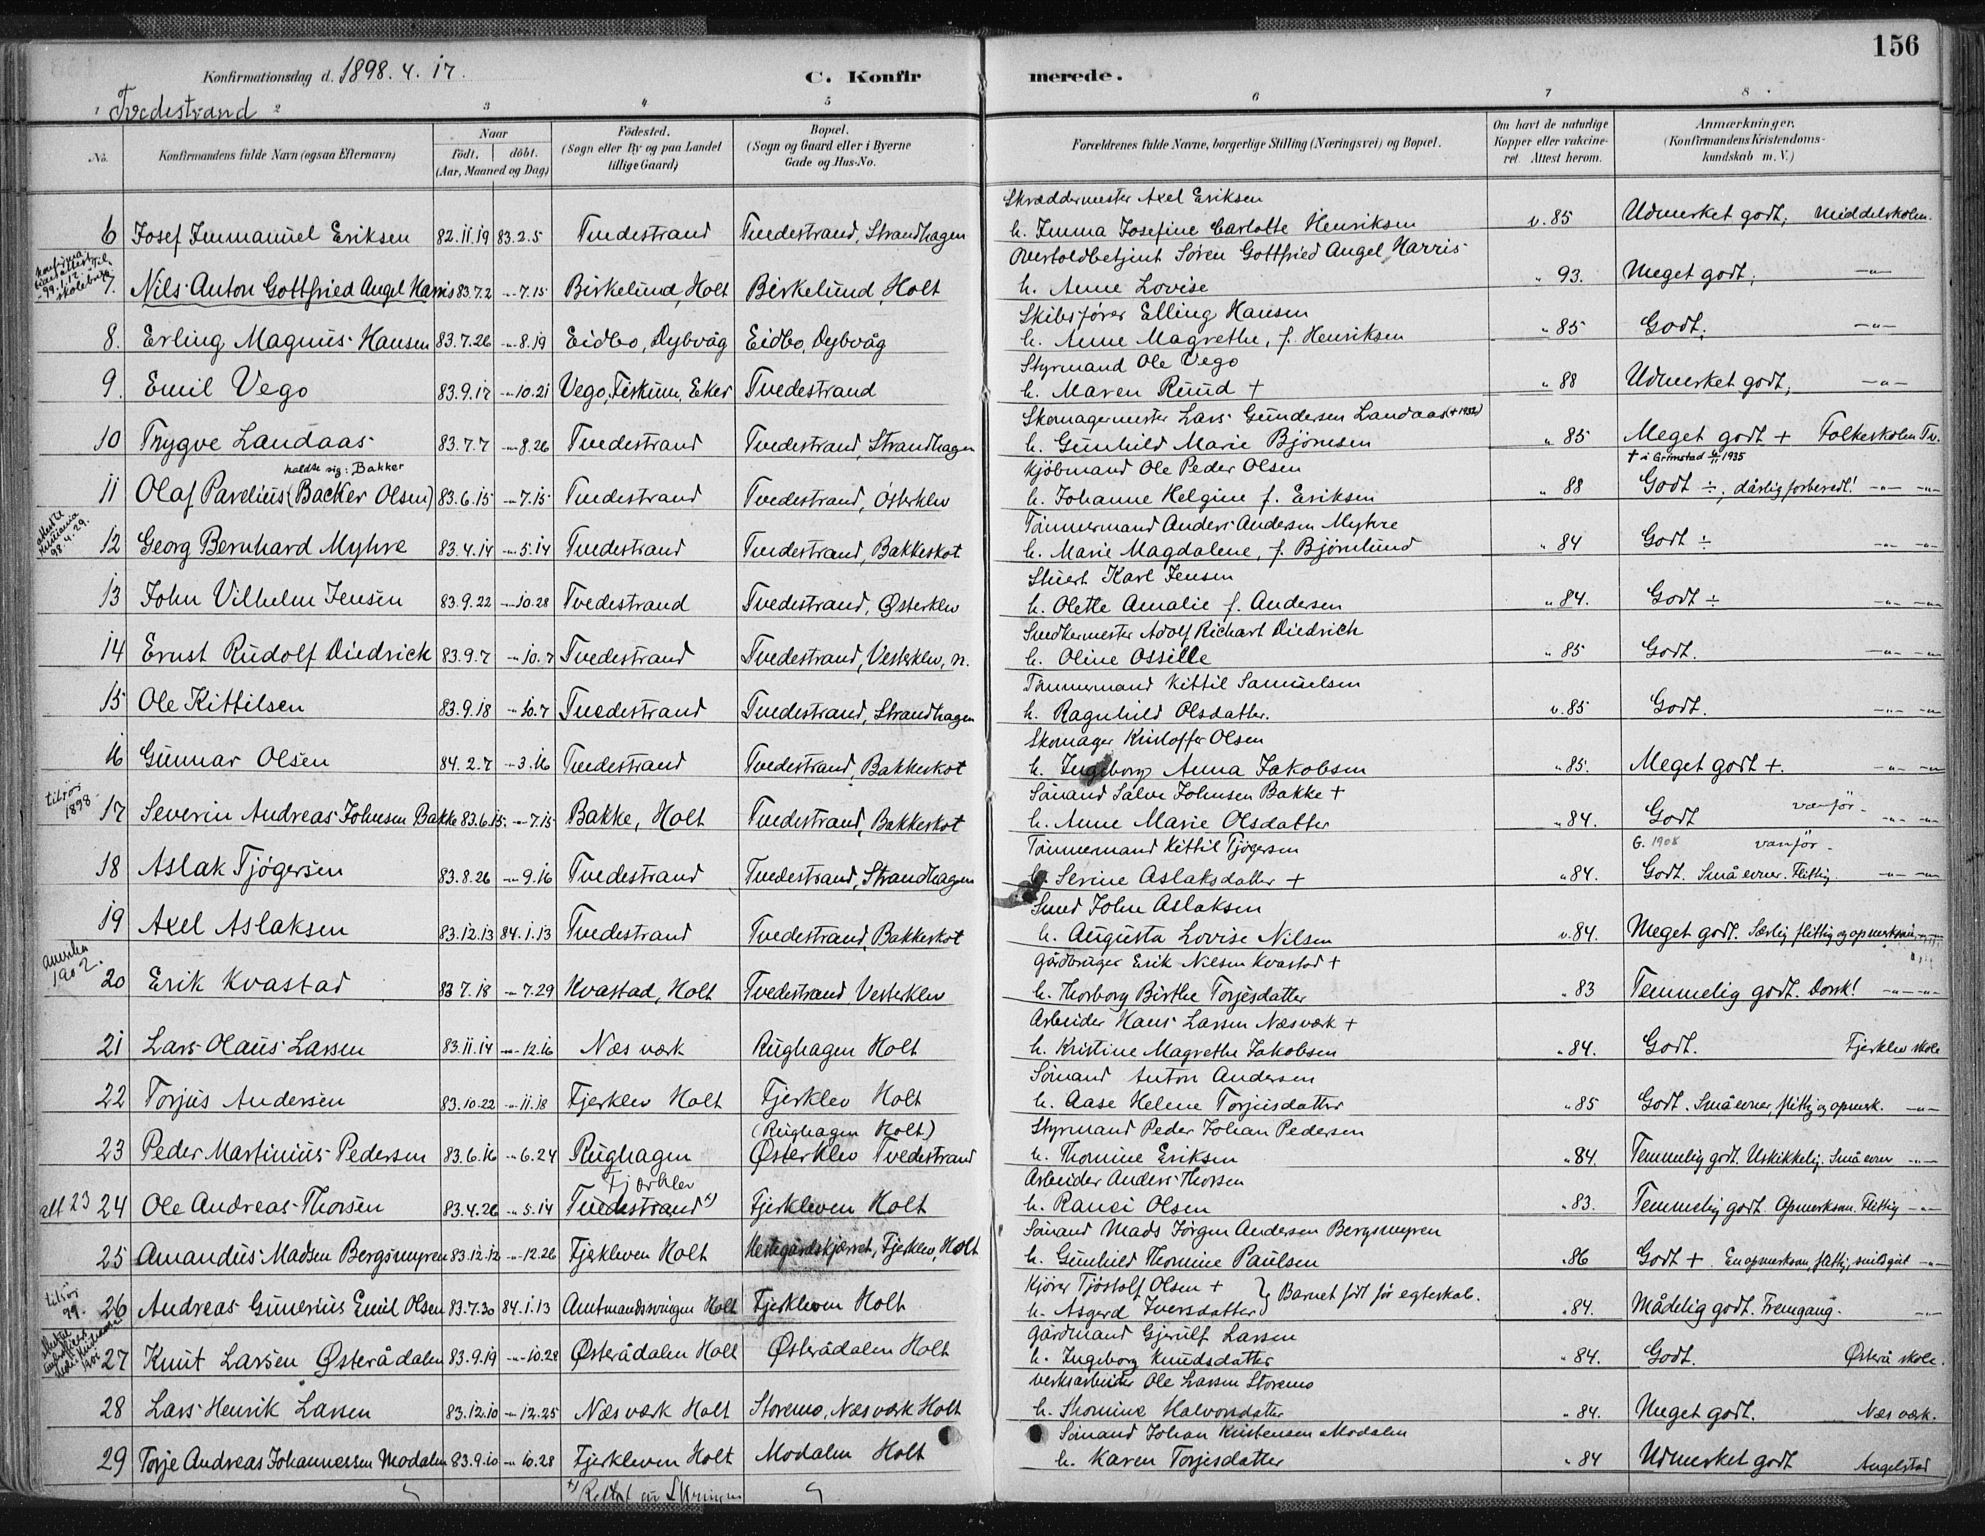 156
Konfirmationsdag d. 1898. 4. 17. C. Konfirmerede.
Tvedestrand
1 2 3 4 5 6 7 8
No. Konfirmandens fulde Navn (ogsaa Efternavn) Naar født. døbt. (Aar, Maaned og Dag) Fødested. (Sogn eller By og paa Landet tillige Gaard) Bopæl. (Sogn og Gaard eller i Byerne Gade og Hus-No. Forældrenes fulde Navne, borgerlige Stilling (Næringsvei) og Bopæl. Om havt de naturlige Kopper eller vakcineret. Attest herom. Anmærkninger. (Konfirmandens Kristendomskundskab m. V.)
Skræddermester Axel Eriksen
6 Josef Immanuel Eriksen 82.11.19 83.2.5 Tvedestrand Tvedestrand, Strandhagen h. Emma Josefine Carlotte Henriksen v. 85 Udmerket godt; Middelskolen.
Overtoldbetjent Søren Gottfried Angel Harris
7. Nils Anton Gottfried Angel Harris 83.7.2 -"-7.15 Birkelund, Holt Birkelund, Holt h. Anne Lovise " 93. Meget godt; -"-
Skibsfører Elling Hansen
8. Erling Magnus Hansen 83.7.26 -"-8.19 Eidbo, Dybvåg Eidbo, Dybvåg h. Anne Magrethe, f. Henriksen " 85 Godt; -"-
Styrmand Ole Vego
9. Emil Vego 83.9.17 -"-10.21 Vego, Fiskum, Eker Tvedestrand h. Maren Ruud + " 88 Udmerket godt; -"-
Skomagermester Lars Gundersen Landaas (+1932)
10 Trygve Landaas 83.7.7 -"-8.26 Tvedestrand Tvedestrand, Strandhagen h. Gunhild Marie Bjørnsen " 85 Meget godt + Folkeskolen Tv.
kaldte sig: Bakker Kjøbmand Ole Peder Olsen + i Grimstad 1935
11 Olaf Parelius (Backer Olsen) 83.6.15 -"-7.15 Tvedestrand Tvedestrand, Østerklev h. Johanne Helgine f. Eriksen " 88 Godt ÷; dårlig forberedt! -"- -"-
98.4.29. Tømmermand Anders Andersen Myhre
12 Georg Bernhard Myhre 83.4.14 -"-5.14 Tvedestrand Tvedestrand, Bakkeskot h. Marie Magdalene, f. Bjørnlund " 84 Godt ÷ -"- -"-
Stuert Karl Jensen
13 John Vilhelm Jensen 83.9.22 -"-10.28 Tvedestrand Tvedestrand, Østerklev h. Olette Amalie f. Andersen " 84. Godt ÷ -"- -"-
Snedkermester Adolf Richart Diedrich
14 Ernst Rudolf Diedrick 83.9.7 -"-10.7 Tvedestrand Tvedestrand, Vesterklev, n. h. Oline Ossille " 85 Godt. -"- -"-
Tømmermand Kittil Samuelsen
15 Ole Kittilsen 83.9.18 -"-10.7 Tvedestrand Tvedestrand, Strandhagen h. Ragnhild Olsdatter. v. 85 Godt. -"- -"-
Skomager Kristoffer Olsen
16 Gunnar Olsen 84.2.7 -"-3.16 Tvedestrand Tvedestrand, Bakkeskot h. Ingeborg Anna Jakobsen " 85. Meget godt +. -"- -"-
tilsøs 1898 Sømand Salve Johnsen Bakke +
17 Severin Andreas Johnsen Bakke 83.6.15. -"-7.15 Bakke, Holt Tvedestrand, Bakkeskot h. Anne Marie Olsdatter " 84. Godt vanfør. -"- -"-
Tømmermand Kittil Tjøgersen G. 1908 vanfør.
18 Aslak Tjøgersen 83.8.26 -"-9.16 Tvedestrand Tvedestrand, Strandhagen h. Serine Aslaksdatter + " 84. Godt. Små evner. Flittig. -"- -"-
Smed John Aslaksen
19 Axel Aslaksen 83.12.13 84.1.13 Tvedestrand Tvedestrand, Bakkeskot h. Augusta Lovise Nilsen v. 84. Meget godt. Særlig flittig og opmerksom. -"-
Amerika 1902. Gårdbruger Erik Nilsen Kvastad +
20 Erik Kvastad 83 7.18 -"-7.29 Kvastad, Holt Tvedestrand Vesterklev h. Thorborg Birthe Torjesdatter " 83 Temmelig godt. Dorsk! -"- -"-
Arbeider Hans Larsen Næsværk +
21 Lars Olaus Larsen 83.11.14 -"-12.16 Næs værk Rughagen Holt h. Kristine Magrethe Jakobsen " 84. Godt. Fjerklev skole
Sømand Anton Andersen
22 Torjus Andersen 83.10.22 -"-11.18 Fjerklev Holt Fjerklev Holt h. Aase Helene Torjusdatter " 85 Godt. Små evner, flittig og opmerk. -"-
(Rughagen Holt) Styrmand Peder Johan Pedersen
23 Peder Martinius Pedersen 83.6.16 -"-6.24 Rughagen Østerklev Tvedestrand h. Thomine Eriksen " 84. Temmelig godt. Uskikkelig. Små evner -"-
Fjærklev Arbeider Anders Thorsen
alt 23 24 Ole Andreas Thorsen 83.4.26 -"-5.14 Tvedestrand x) Fjerkleven Holt h. Ranei Olsen " 83. Temmelig godt. Opmerksom. Flittig -"-
Sømand Mads Jørgen Andersen Bergsmyren
25 Amandus Madsen Bergsmyren 83.12.12 -"-12.26 Fjerkleven Holt Hestegårdskjærret, Fjerklev, Holt h. Gunhild Thomine Paulsen " 86 Godt + En opmerksom, flittig, snild gut -"-
tilsøs 99. Kjører Tjøstolf Olsen + } Barnet født før egteskab.
26 Andreas Gunerius Emil Olsen 83.7.30 84.1.13 Amtmandssvingen Holt Fjerkleven Holt h. Asgerd Iversdatter " 84. Mådelig godt. Fremgang. -"-
Gårdmand Gjerulf Larsen
27 Knut Larsen Østerådalen 83.9.19 -"-10.28 Østerådalen Holt Østerådalen Holt h. Ingeborg Knudsdatter " 84. Godt. Østerå skole.
Verksarbeider Ole Larsen Storemo
28 Lars Henrik Larsen 83.12.10 -"-12.25 Næs værk Holt Storemo, Næs værk Holt h. Thomine Halvorsdatter " 84. Meget godt. Næs værk.
Sømand Johan Kristensen Modalen
29 Torje Andreas Johannessen Modalen 83.9.10 -"-10.28 Fjerkleven Holt Modalen Holt h. Karen Torjesdatter " 84 Udmerket godt Angelstad
x) Rettet